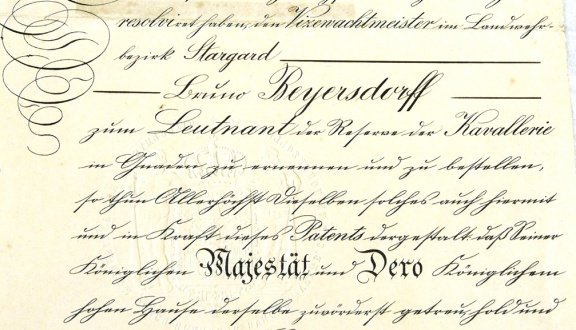 resolviret haben, den Vizewachtmeister im Landwehr-
bezirk Stargard
Bruno Beyersdorff
zum Leutnant der Reserve der Kavallerie
in Gnaden zu ernennen und zu bestellen,
so thun Allerhöchst Dieselben solches auch hiermit
und in Kraft dieses Patents dergestalt daß Seiner
Königlichen Majestät und Dero Königlichem
hohen Hause derselbe zuvörderst getreu, hold und